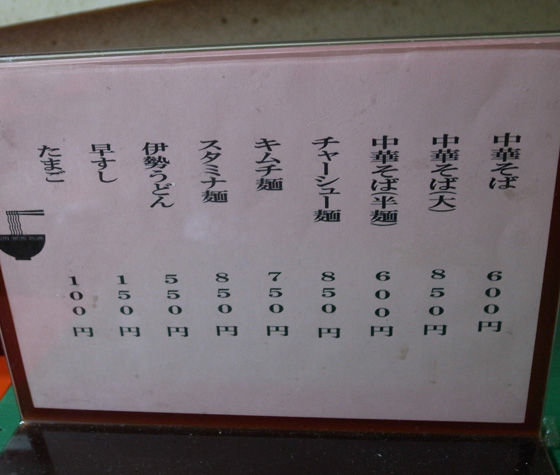 中華そば 600円
中華そば(大) 850円
中華そば(半麺) 600円
チャーシュー麺 850円
キムチ麺 750円
スタミナ麺 850円
伊勢うどん 550円
早すし 150円
たまご 100円